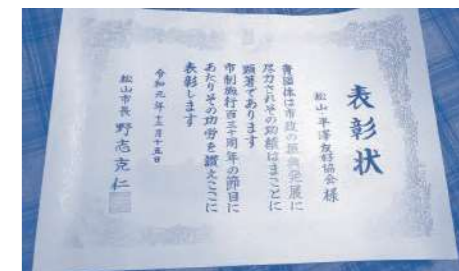 表彰状
松山・平澤友好協会 様
貴団体は市政の振興発展に
尽力されその功績はまことに
顕著であります
市制施行百三十周年の節目に
あたりその功労を讃えここに
表彰します
令和元年十二月十五日
松山市長 野志克仁